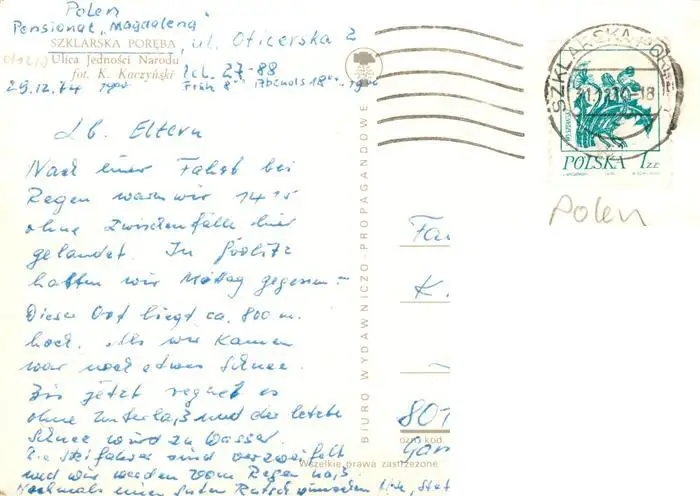 Polen
Pensionat "Magdalena"
SZKLARSKA PORĘBA ul. Oficerska 2
Ulica Jedności Narodu
fot. K. Kaczyński Tel. 27-88
29.12.74 19⁰⁰ Früh 8⁰⁰ Abends 18⁰⁰ - 19⁰⁰
Lb. Eltern
Nach einer Fahrt bei
Regen waren wir 14¹⁵
ohne Zwischenfälle hier
gelandet. In Görlitz
hatten wir Mittag gegessen -
Dieser Ort liegt ca. 800 m.
hoch. Als wir kamen
war noch etwas Schnee.
Bis jetzt regnet es
ohne Unterlaß und der letzte
Schnee wird zu Wasser.
Die Skifahrer sind verzweifelt
und wir werden vom Regen naß
Nochmals einen guten Rutsch wünschen
BIURO WYDAWNICZO-PROPAGANDOWE
Wszelkie prawa zastrzeżone
SZKLARSKA PORĘBA
POLSKA 1 ZŁ
Polen
Fa
K.
801
kod